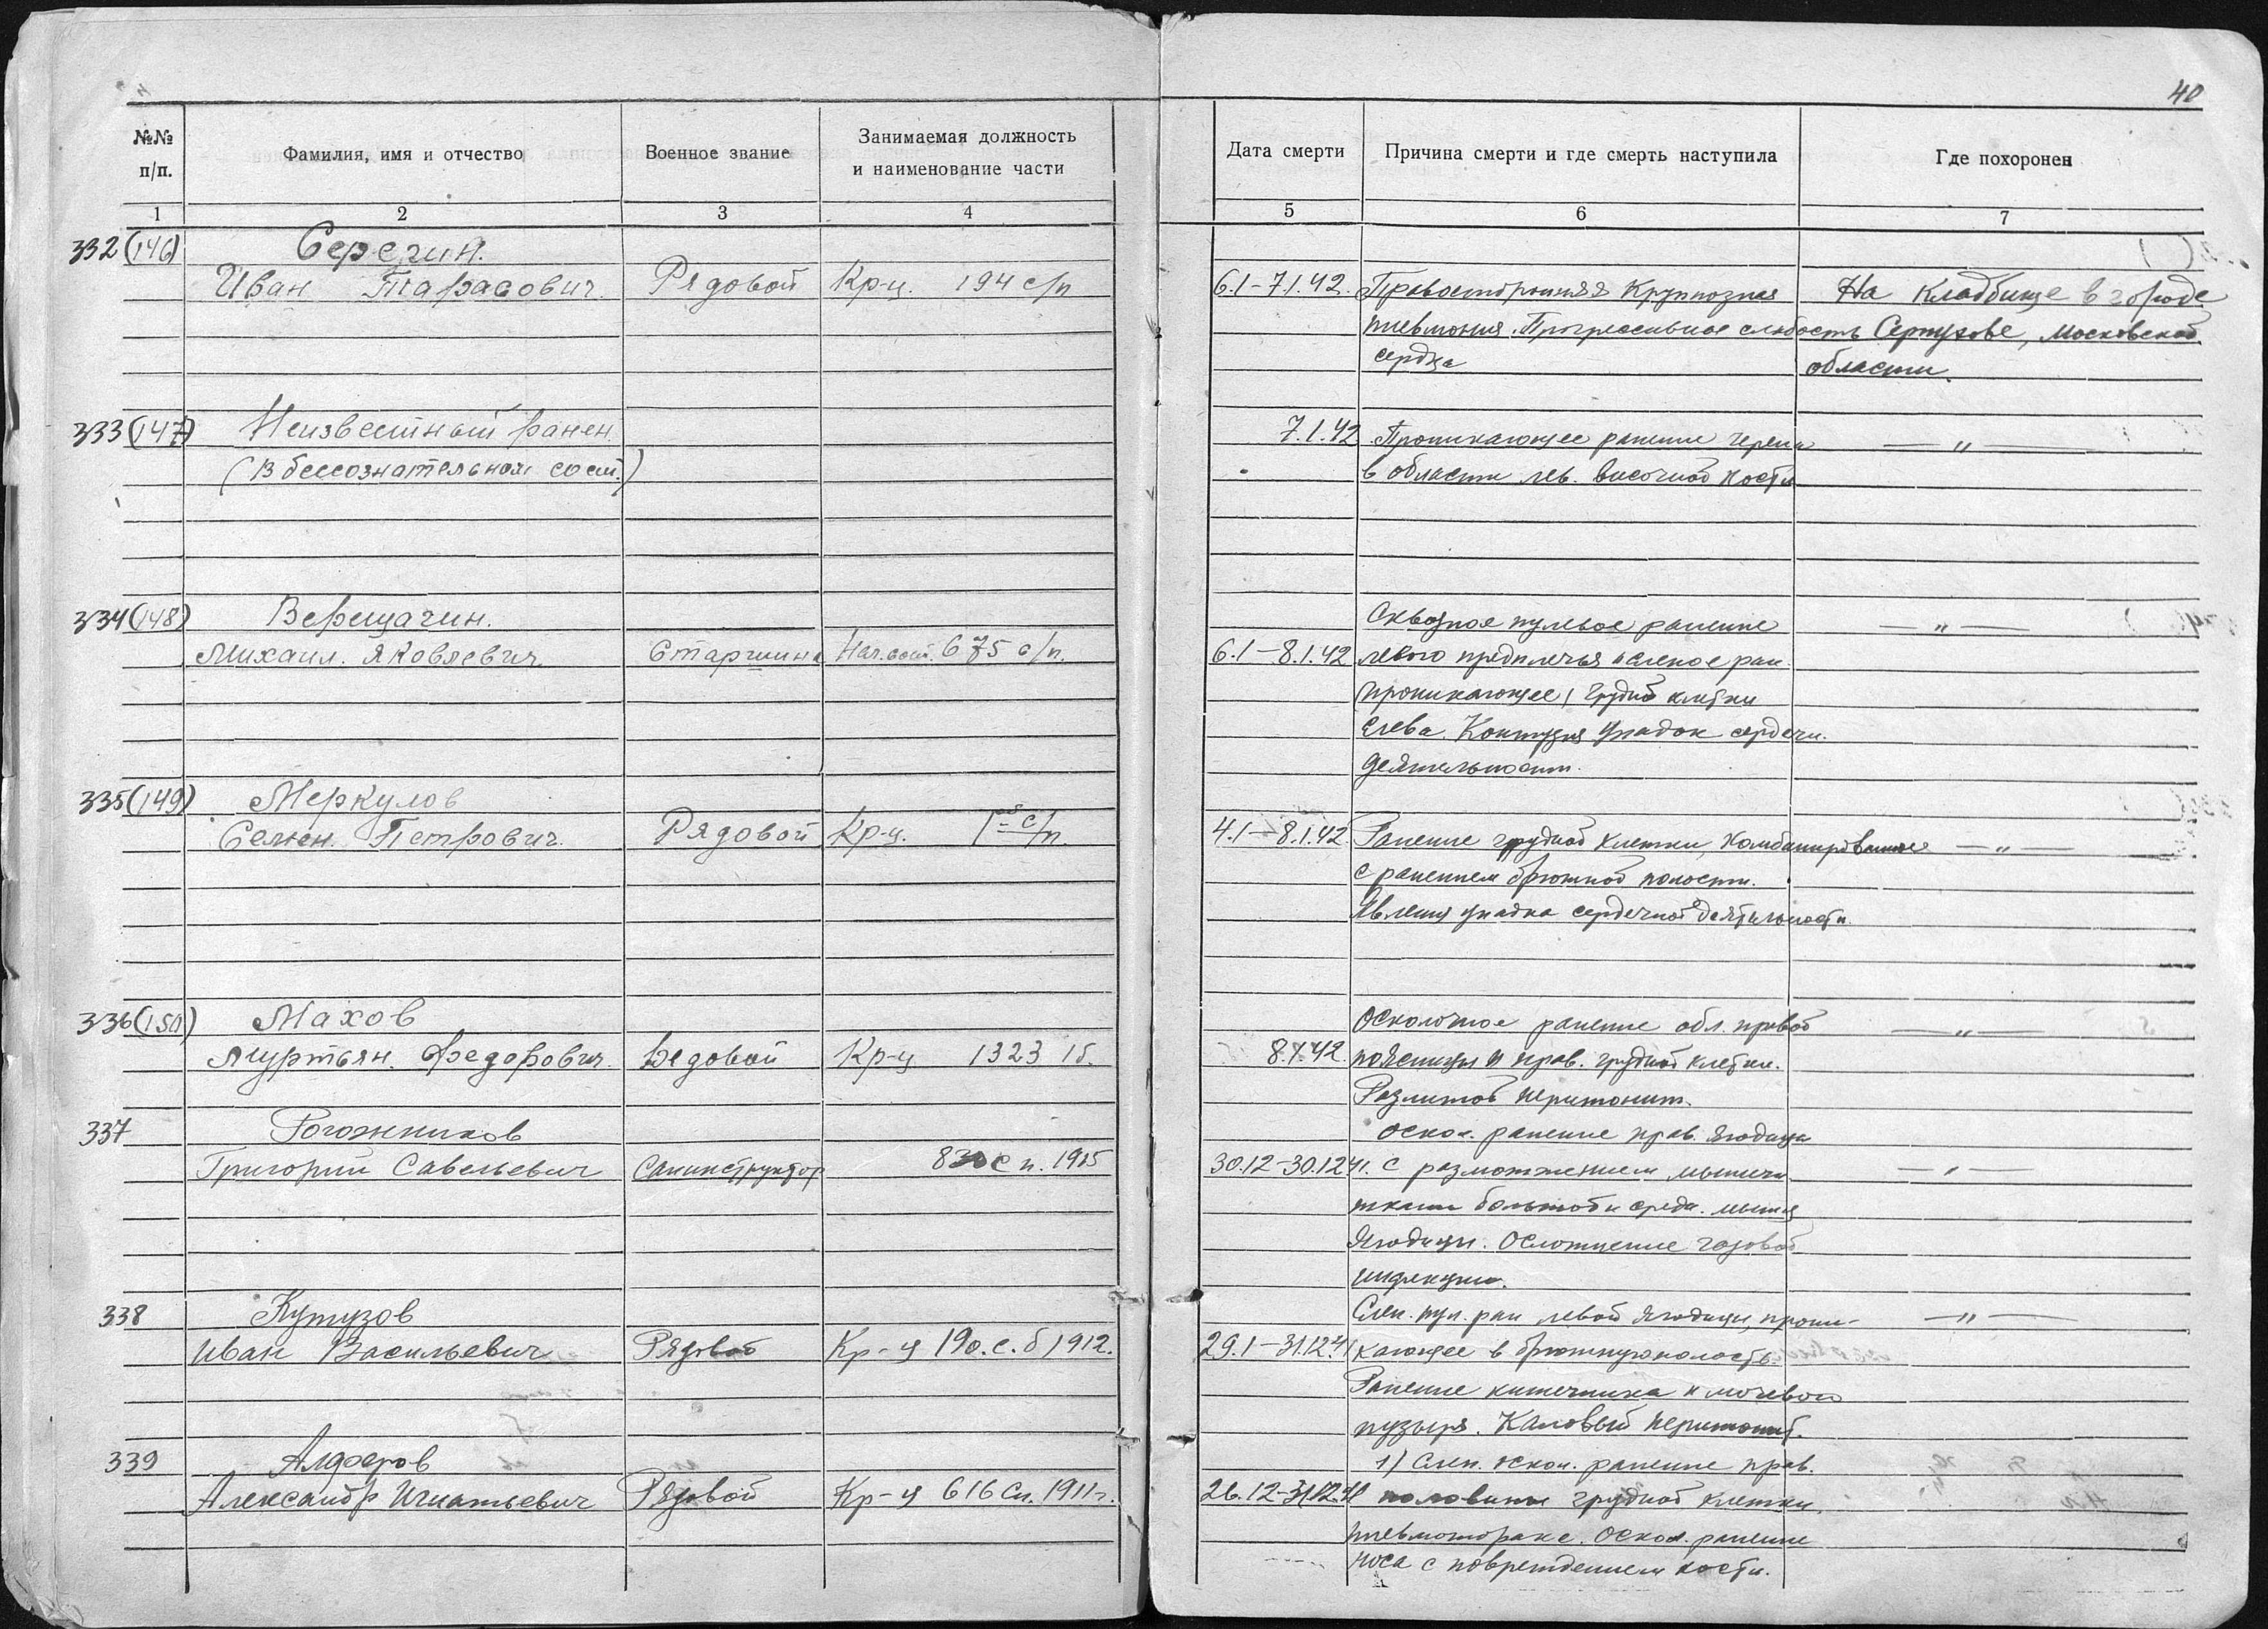 40
№№ п/п.
Фамилия, имя и отчество
Военное звание
Занимаемая должность
и наименование части
Дата смерти
Причина смерти и где смерть наступила
Где похоронен
1 2 3 4 5 6 7
332 (146) Серегин.
Иван Тарасович. Рядовой Кр-ц. 194 с/п 6.1-7.1.42. Правосторонняя Крупозная На Кладбище в городе
пневмония. Прогрессивная слабость Серпухове, Московской
сердца области.
333 (147) Неизвестный ранен. 7.1.42 Проникающее ранение черепа — „ —
(В бессознательном сост.) в области лев. височной кости
334 (148) Верещагин. Сквозное пулевое ранение — „ —
Михаил. Яковлевич Старшина Нач. 675 с/п. 6.1-8.1.42 левого предплечья ран.
проникающее, грудной клетки
слева. Контузия Упадок сердечн.
деятельности.
335 (149) Меркулов
Семен. Петрович. Рядовой Кр-ц. с/п. 4.1-8.1.42 Ранение грудной клетки, комбинированное — „ —
с ранением брюшной полости.
Явления упадка сердечной деятельности.
336 (150) Махов Осколочное ранение обл. правой — „ —
Муртьян. Федорович. Рядовой Кр-ц 1323 8.1.42. поясницы и прав. грудной клетки.
Разлитой перитонит.
337 Рогожников Оскол. ранение прав. ягодицы
Григорий Савельевич Санинструктор с п. 1915 30.12-30.12.41. с размозжением мышечн. — „ —
ткани большой и средн. мышц
ягодицы. Осложнение газовой
инфекции.
338 Кутузов Слеп. пул. ран левой ягодицы, прони- — „ —
Иван Васильевич Рядовой Кр-ц 190. с. б 1912. 29.1-31.12.41 кающее в брюшную полость.
Ранение кишечника и мочевого
пузыря. Каловый перитонит.
339 Алферов 1) Слеп. оскол. ранение прав.
Александр Игнатьевич Рядовой Кр-ц 616 сп. 1911г. 26.12-31.12.41 половины грудной клетки.
пневмоторакс. Оскол. ранение
носа с повреждением кости.